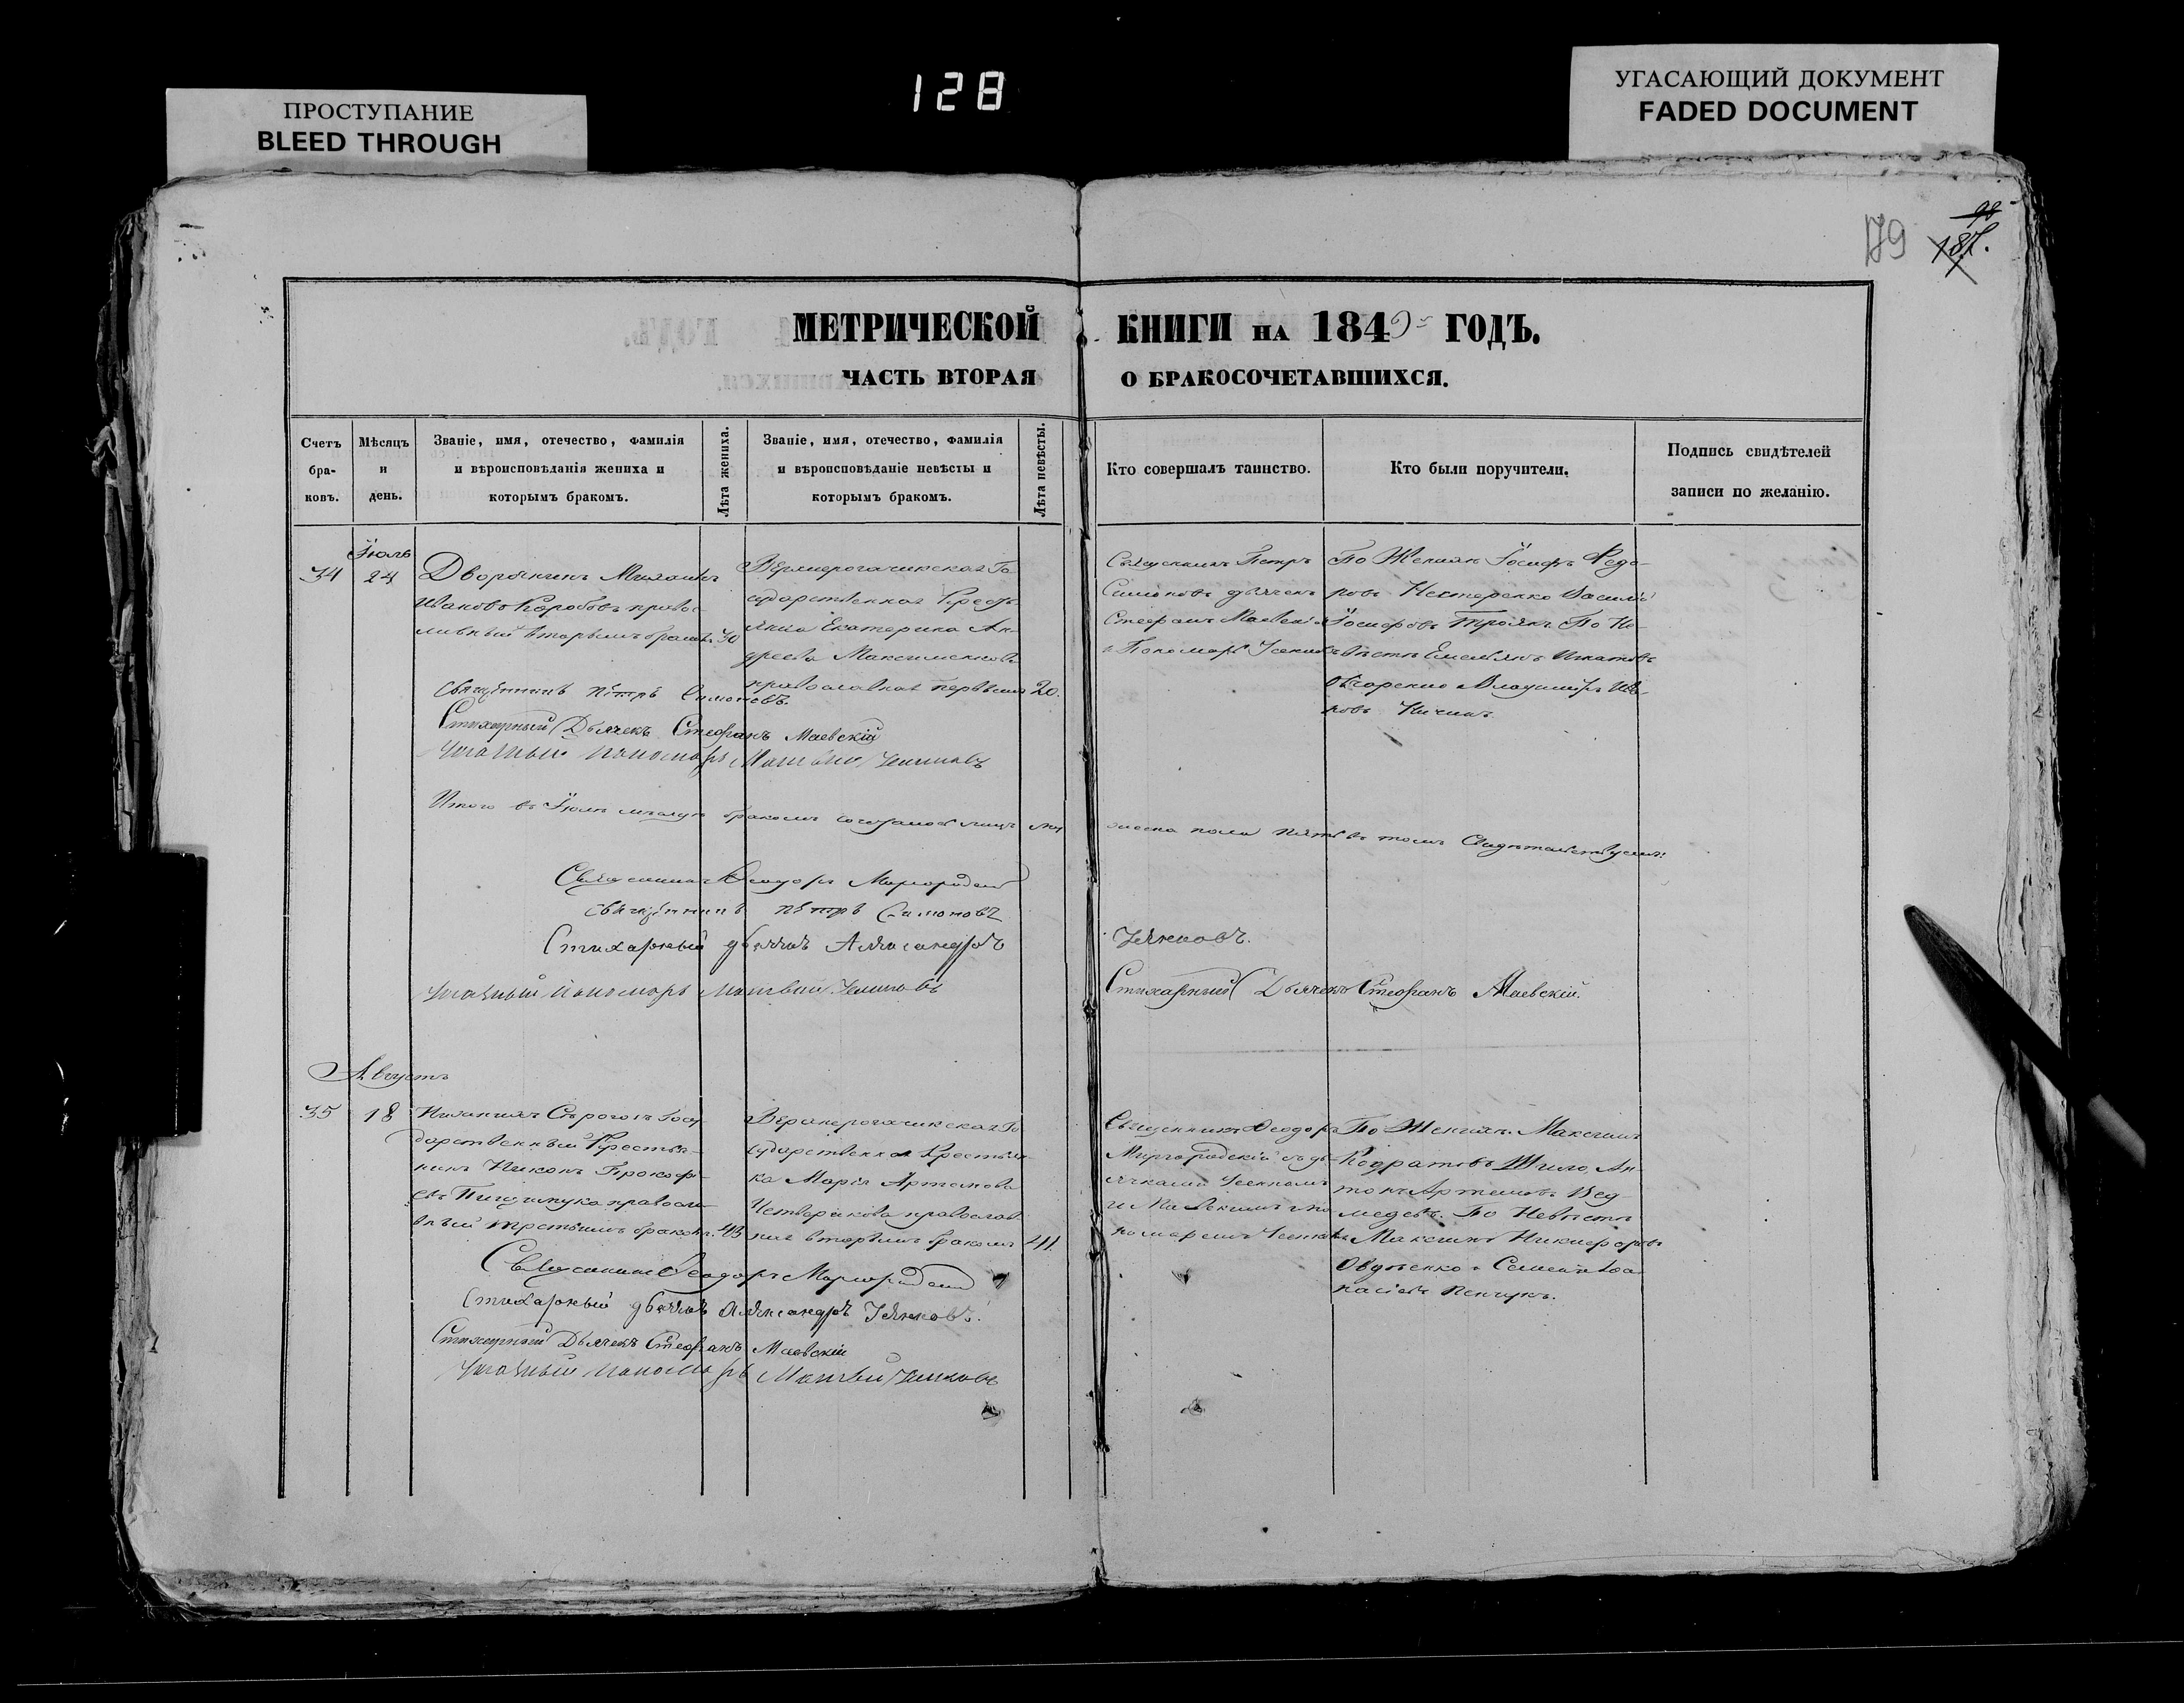 ПРОСТУПАНИЕ
BLEED THROUGH
128
УГАСАЮЩИЙ ДОКУМЕНТ
FADED DOCUMENT
179
98
187.
МЕТРИЧЕСКОЙ КНИГИ НА 1849 ГОДЪ.
ЧАСТЬ ВТОРАЯ О БРАКОСОЧЕТАВШИХСЯ.
Счетъ бра-ковъ.
Мѣсяцъ и день.
Званіе, имя, отечество, фамилія
и вѣроисповѣданія жениха и
которымъ бракомъ.
Лѣта жениха.
Званіе, имя, отечество, фамилія
и вѣроисповѣданіе невѣсты и
которымъ бракомъ.
Лѣта невѣсты.
Кто совершалъ таинство.
Кто были поручители.
Подпись свидѣтелей
записи по желанію.
Іюль
34
24
Дворянинъ Михаилъ
Ивановъ Коробовъ правос
лавный вторымъ бракомъ
30
Верхнерогачикская Го
сударственная Кресть
янка Екатерина Ан
дреева Максименкова
православная первымъ
20.
Священникъ Петръ
Симоновъ дьячекъ
Стефанъ Маевскій
и Пономарь
По Женихѣ Іосифъ Федо
ровъ Нестеренко Василій
Іосифовъ Троянъ По Не
вѣстѣ Емельянъ Игнатовъ
Овчаренко Владиміръ Ива
новъ
Священникъ Петръ Симоновъ.
Стихарный Дьячекъ Стефанъ Маевскій
Пономарь Матвей
Итого въ Іюлѣ мѣсяцѣ бракомъ сочеталось лицъ
пола пять въ томъ Свидѣтельствуемъ:
Священникъ Феодоръ Миргородскій
Священникъ Петръ Симоновъ
Стихарный дьячекъ Александръ
Пономарь Матвей
Стихарный Дьячекъ Стефанъ Маевскій.
Августъ
35
18
Нижнихъ Сѣрогозъ Госу
дарственный Крестья
нинъ Никонъ Прокофі
евъ правосла
вный третьимъ бракомъ.
43
Верхнерогачикская Го
сударственная Крестьян
ка Марія Артемова
Четверикова православ
ная вторымъ бракомъ
41.
Священникъ Феодоръ
Миргородскій съ дь
ячками
и Маевскимъ и по
номаремъ
По Женихѣ. Максимъ
Кодратовъ Шило, Ан
тонъ Артемовъ Вед
медевъ. По Невѣстѣ
Максимъ Никифоровъ
Овденко Семенъ Афа
насіевъ
Священникъ Феодоръ Миргородскій
Стихарный дьячекъ Александръ
Стихарный Дьячекъ Стефанъ Маевскій
Пономарь Матвей